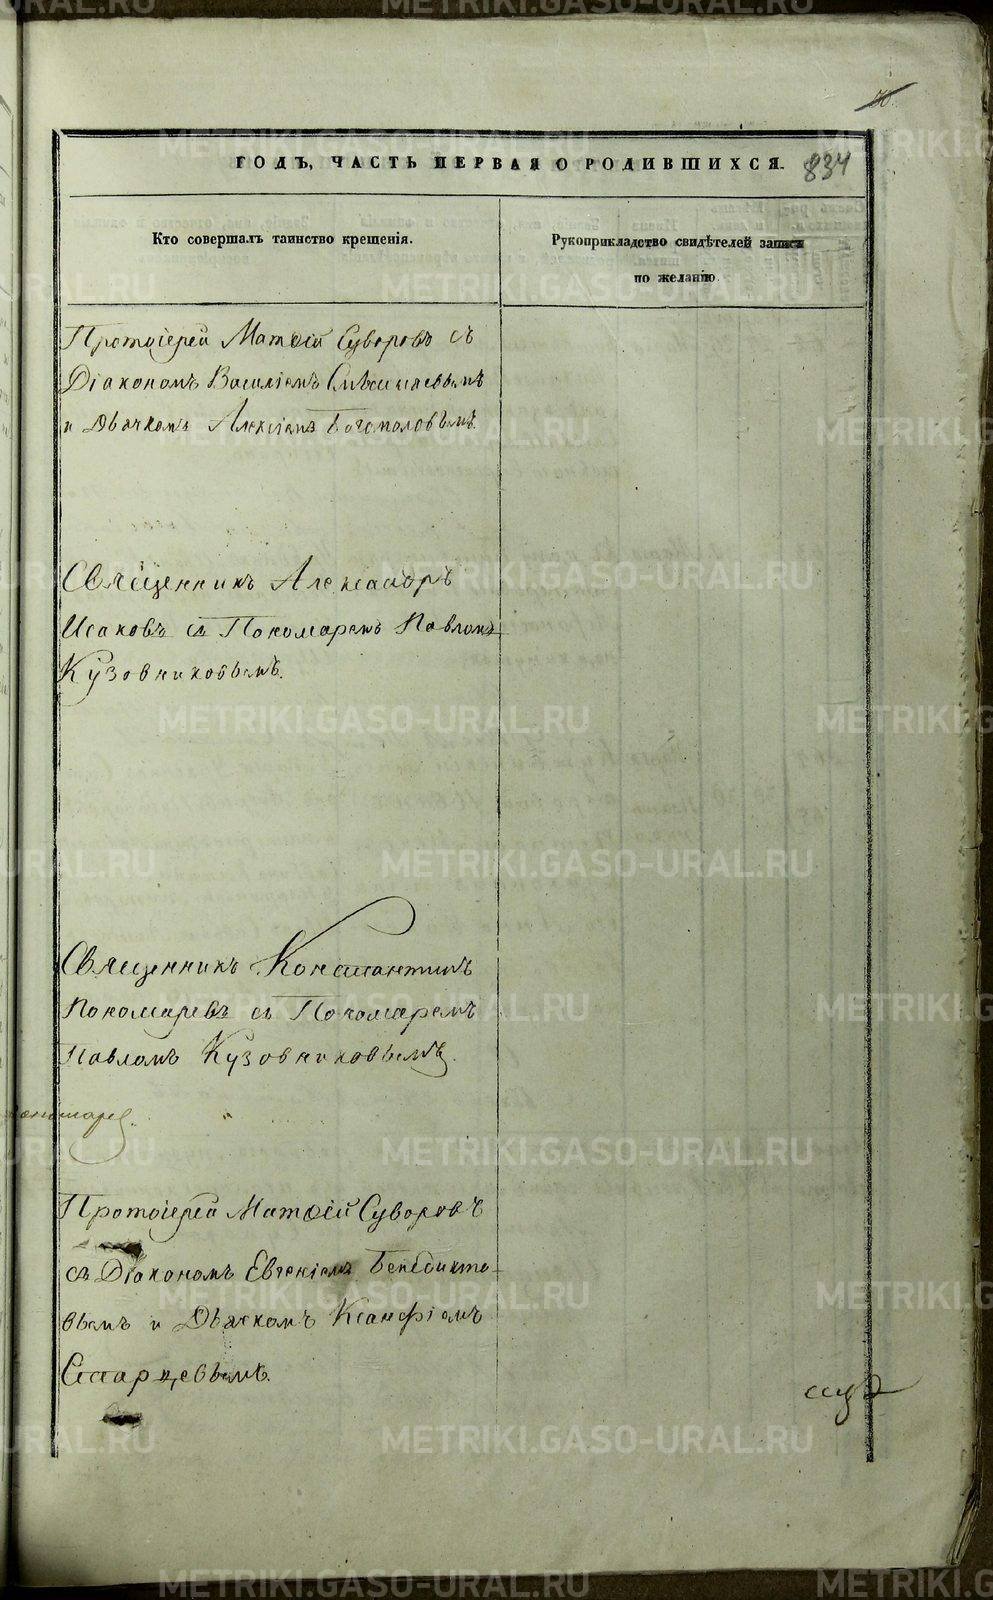 834
ГОДЪ, ЧАСТЬ ПЕРВАЯ О РОДИВШИХСЯ.
Кто совершалъ таинство крещенія.
Рукоприкладство свидѣтелей записи
по желанію.
Протоіерей Матѳій Суворовъ съ
Діакономъ Василіемъ
и Дьячкомъ Алексіемъ Богомоловымъ.
Священникъ Александръ
Исаковъ съ Пономаремъ Павломъ
Кузовниковымъ.
Священникъ Константинъ
Пономаревъ съ Пономаремъ
Павломъ Кузовниковымъ.
Протоіерей Матѳій Суворовъ
съ Діакономъ Евгеніемъ Бенедикто-
вымъ и Дьячкомъ Ксанфіемъ
Старцевымъ.
METRIKI.GASO-URAL.RU